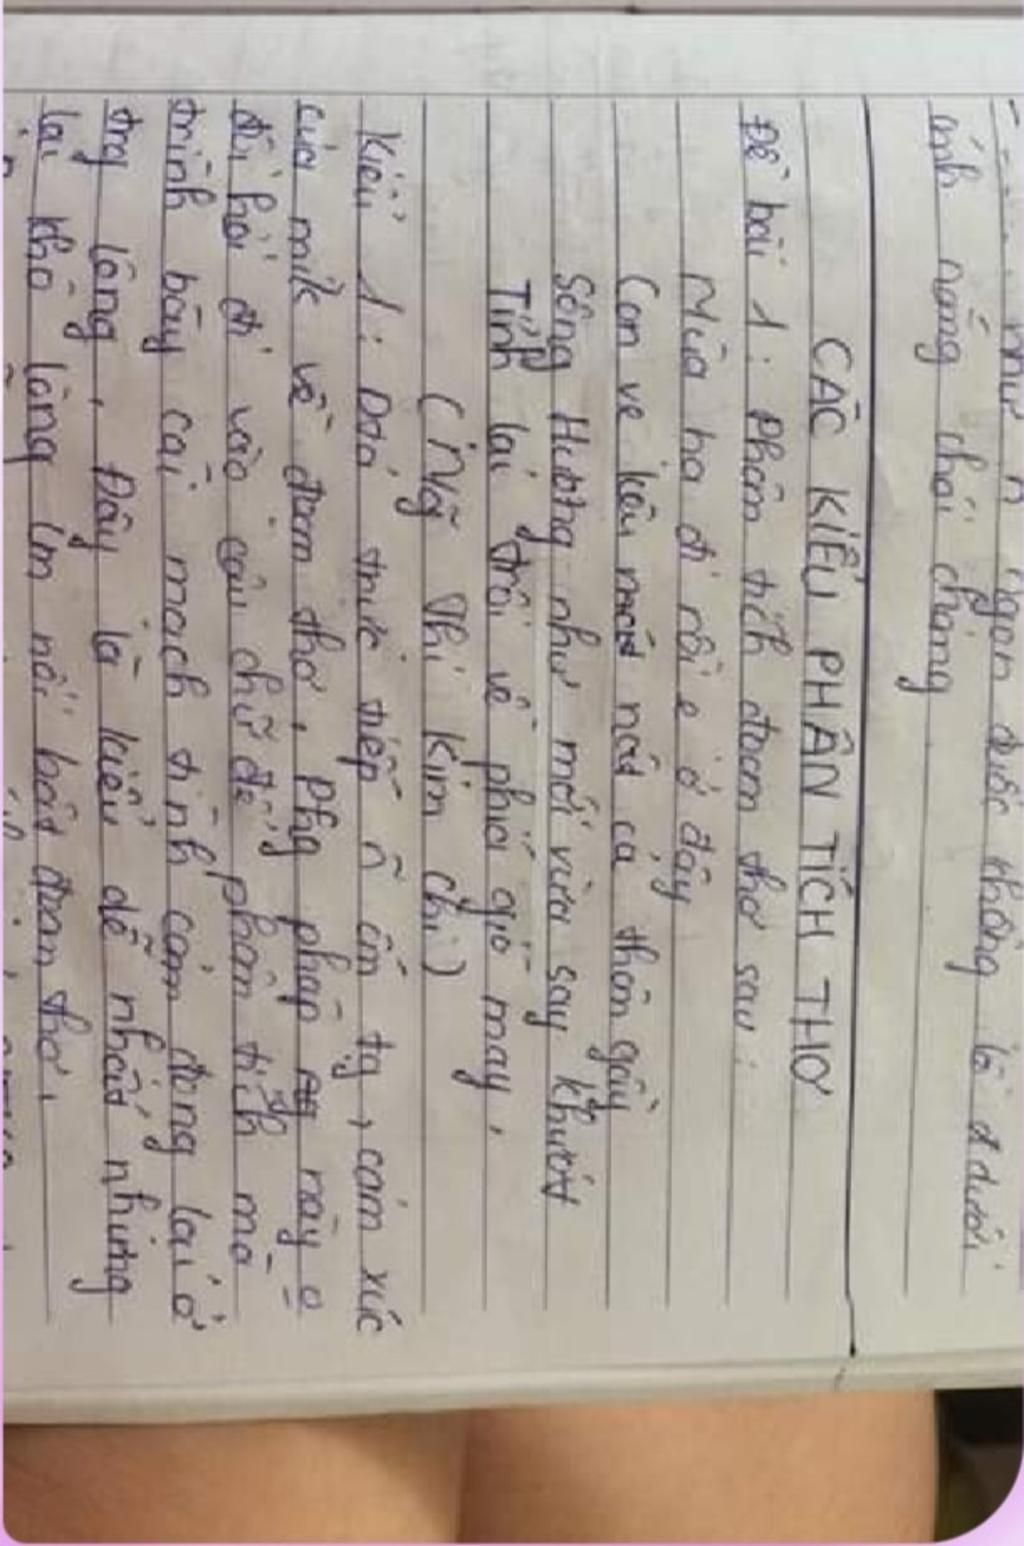 như n ngọn đuốc khổng lồ d dưới
ánh nắng chói chang
CÁC KIỂU PHÂN TÍCH THƠ
Đề bài 1: Phân tích đoạn thơ sau:
Mùa hạ đi rồi e ở đây
Con ve kêu nát cả thân gầy
Sông Hương như mới vừa say khướt
Tỉnh lại trôi về phía gió may.
(Ng Thị Kim Chi)
Kiểu 1: Dẫn trực tiếp ~ ấn tg, cảm xúc
của mik về đoạn thơ. Phg pháp này o
đòi hỏi đi vào câu chữ để phân tích mà
trình bày cái mạch tình cảm đọng lại ở
trg lòng. Đây là kiểu dễ nhất nhưng
lại khó làng lm nổi bật đoạn thơ.